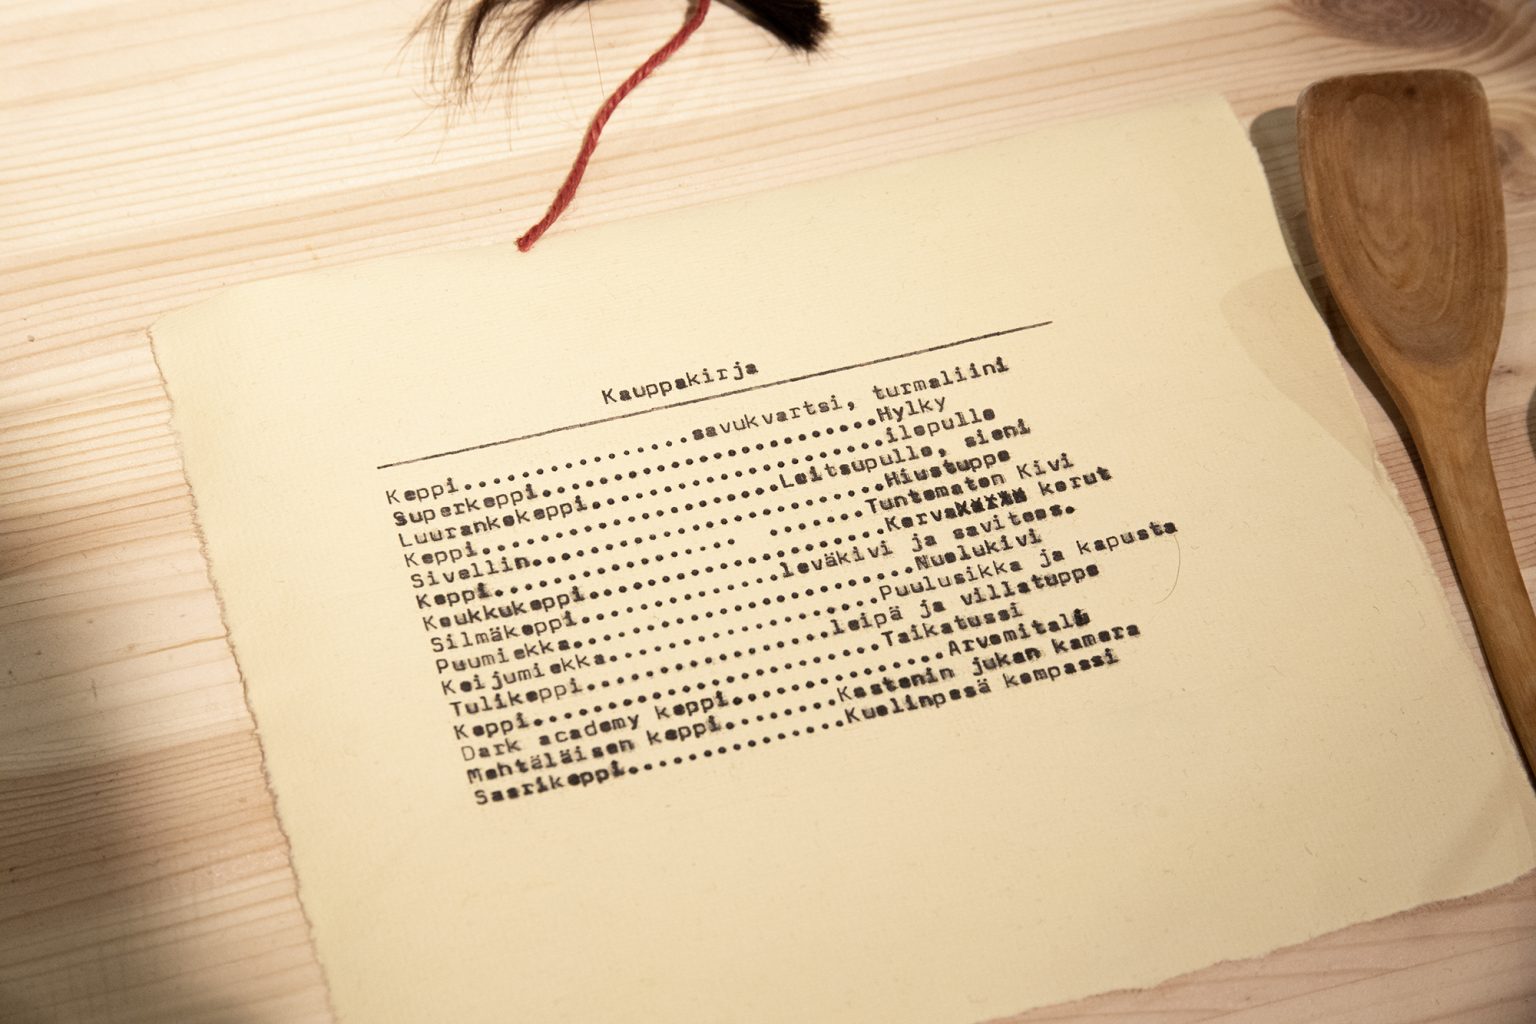 Kauppakirja
Keppi................savukvartsi, turmaliini
Superkeppi.......................Hylky
Luurankokeppi....................ilopullo
Keppi.....................Loitsupullo, sieni
Sivellin.........................Hiustuppo
Keppi................. .......Tuntematon Kivi
Koukkukeppi.....................Korva korut
Silmäkeppi..............leväkivi ja saviteos.
Puumiekka........................Nuolukivi
Keijumiekka...................Puulusikka ja kapusta
Tulikeppi.................leipä ja villatuppo
Keppi........................Taikatussi
Dark academy keppi...............Arvomitali
Mehtäläisen keppi........Kastenin jukan kamera
Saarikeppi...............Kuolinpesä kompassi